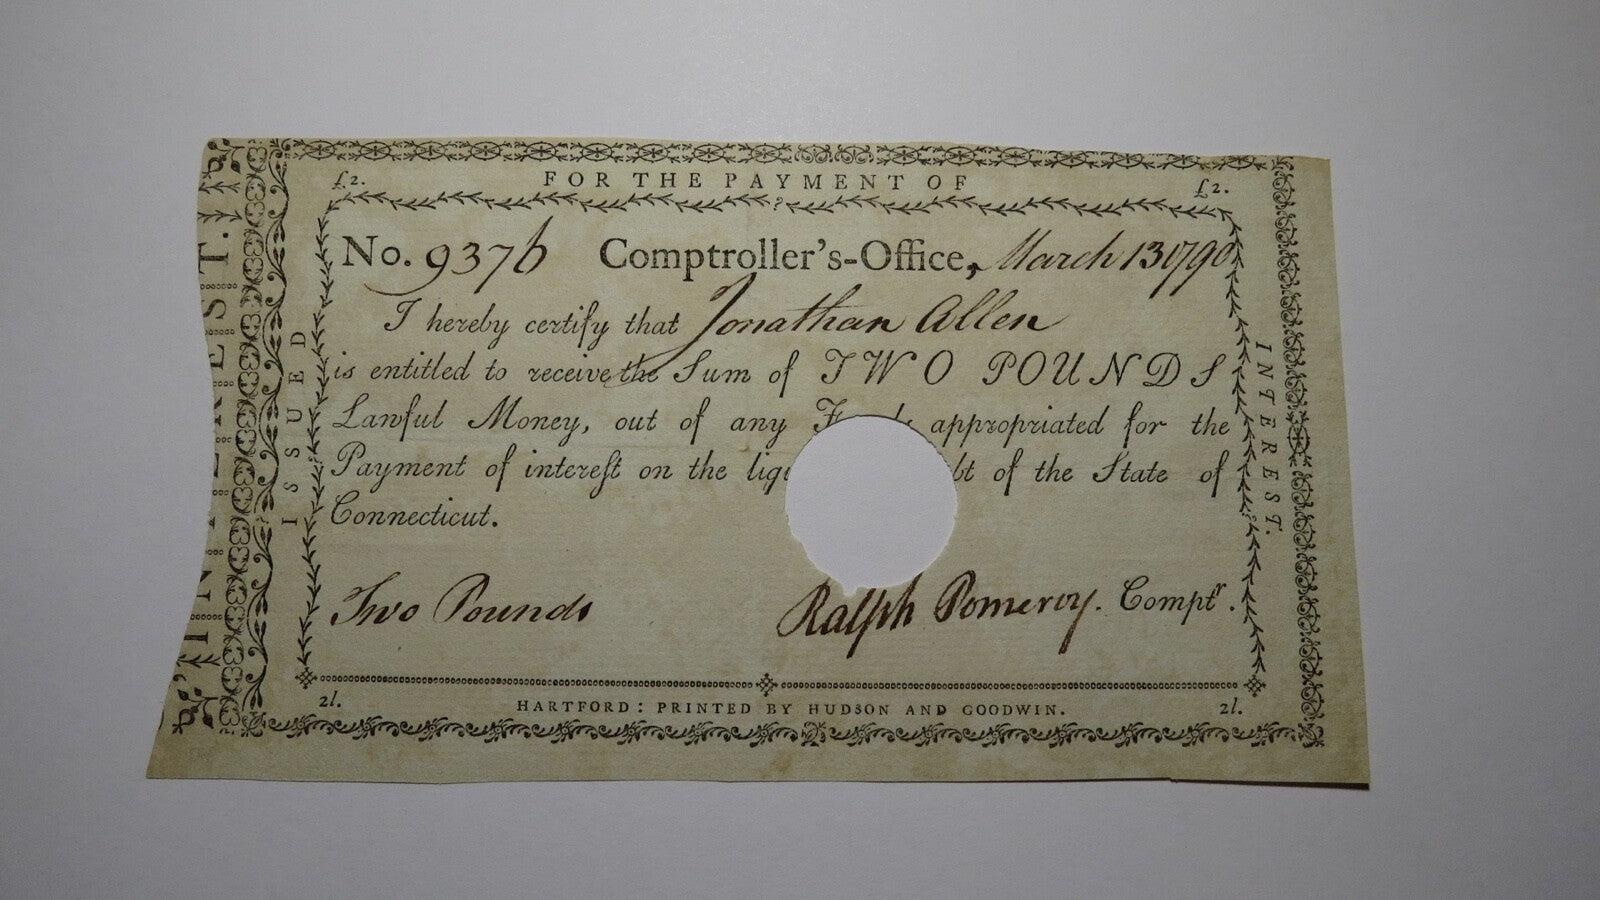 FOR THE PAYMENT OF
£2. £2.
No. 9376 Comptroller's-Office, March 13 1790
I hereby certify that Jonathan Allen
is entitled to receive the Sum of TWO POUNDS
Lawful Money, out of any appropriated for the
Payment of intereſt on the of the State of
Connecticut.
Two Pounds Ralph Pomeroy. Comptr.
2l. 2l.
HARTFORD: PRINTED BY HUDSON AND GOODWIN.
ISSUED
INTEREST.